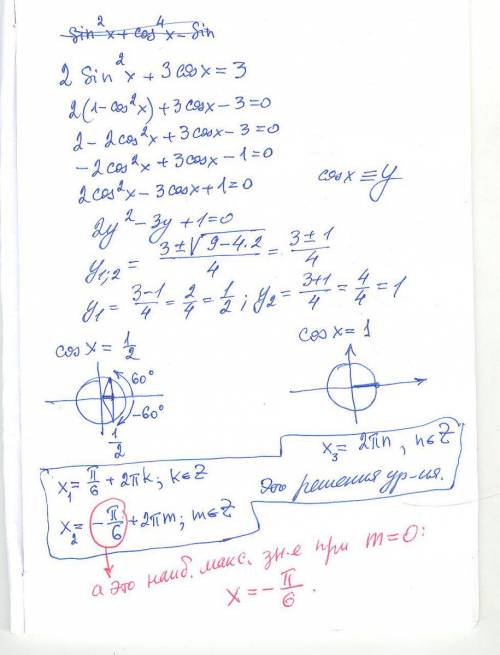 sin²x + cos⁴x = sin
2 sin²x + 3 cosx = 3
2(1-cos²x) + 3cosx - 3 = 0
2 - 2cos²x + 3cosx - 3 = 0
-2cos²x + 3cosx - 1 = 0
2cos²x - 3cosx + 1 = 0
cosx ≡ y
2y² - 3y + 1 = 0
y₁;₂ = (3 ± √(9-4·2))/4 = (3±1)/4
y₁ = (3-1)/4 = 2/4 = 1/2 ; y₂ = (3+1)/4 = 4/4 = 1
cosx = 1/2
60°
-60°
1/2
cosx = 1
x₃ = 2πn, n∈Z
x₁ = π/6 + 2πk; k∈Z
x₂ = -π/6 + 2πm; m∈Z
Это решения ур-ия.
а это наиб. макс. зн-е при m=0:
x = -π/6.